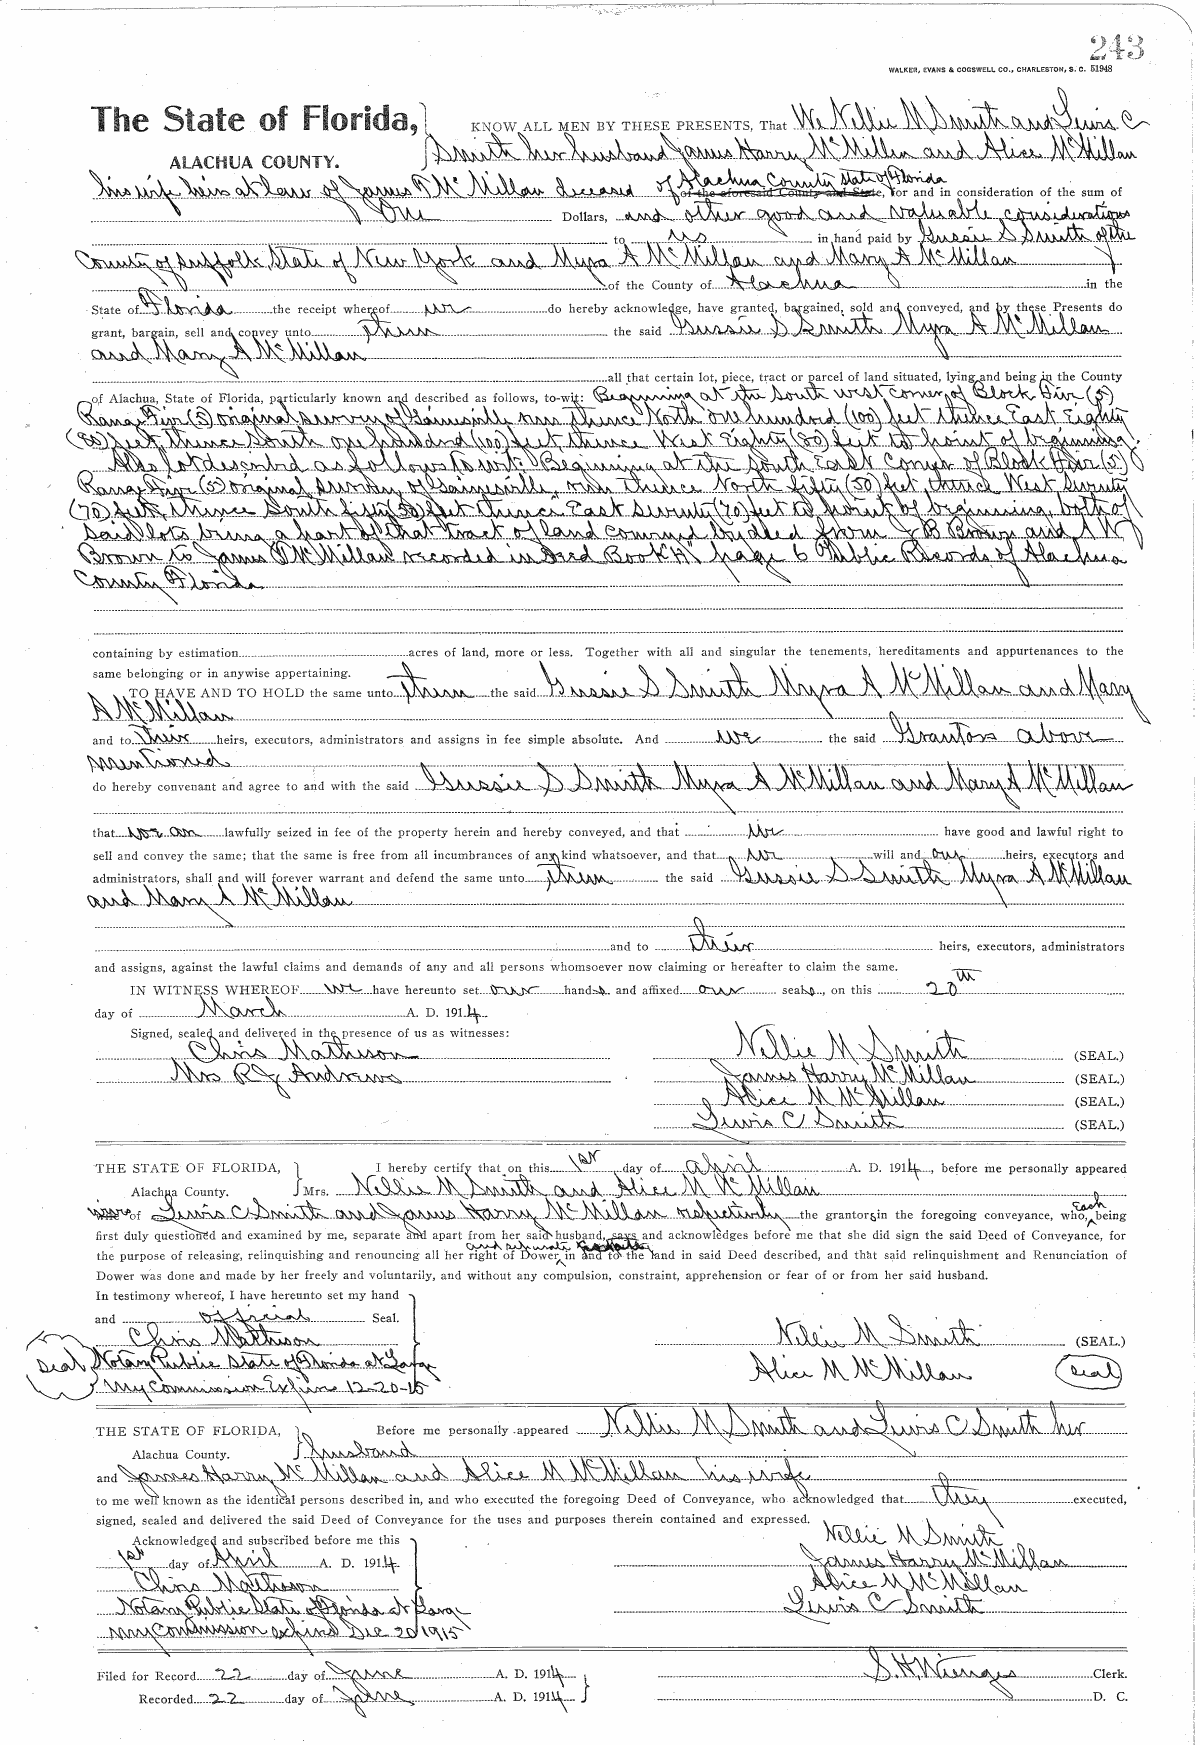 243
WALKER, EVANS & COGSWELL CO., CHARLESTON, S. C. 51948
The State of Florida, KNOW ALL MEN BY THESE PRESENTS, That We Nellie M Smith and Lewis C
ALACHUA COUNTY. Smith her husband James Harry McMillan and Alice McMillan
his wife heirs at law of James P McMillan deceased of Alachua County State of Florida of the aforesaid County and State, for and in consideration of the sum of
One Dollars, and other good and valuable considerations
to us in hand paid by Gussie S Smith of the
County of Suffolk State of New York and Myra A McMillan and Mary A McMillan
of the County of Alachua in the
State of Florida the receipt whereof we do hereby acknowledge, have granted, bargained, sold and conveyed, and by these Presents do
grant, bargain, sell and convey unto them the said Gussie S Smith Myra A McMillan
and Mary A McMillan
all that certain lot, piece, tract or parcel of land situated, lying and being in the County
of Alachua, State of Florida, particularly known and described as follows, to-wit: Beginning at the South west corner of Block Five (5)
Range Five (5) original survey of Gainesville run thence North one hundred (100) feet thence East Eighty
(80) feet thence South one hundred (100) feet thence West Eighty (80) feet to point of beginning.
Also lot described as follows to wit: Beginning at the South East Corner of Block Five (5)
Range Five (5) original survey of Gainesville, run thence North fifty (50) feet, thence West Seventy
(70) feet, thence South fifty (50) feet thence East Seventy (70) feet to point of beginning, both of
said lots being a part of that tract of land conveyed by deed from J B Brown and A W
Brown to James P McMillan recorded in Deed Book "A" page 6 Public Records of Alachua
County Florida
containing by estimation acres of land, more or less. Together with all and singular the tenements, hereditaments and appurtenances to the
same belonging or in anywise appertaining.
TO HAVE AND TO HOLD the same unto them the said Gussie S Smith Myra A McMillan and Mary
A McMillan
and to their heirs, executors, administrators and assigns in fee simple absolute. And we the said Grantors above
mentioned
do hereby convenant and agree to and with the said Gussie S Smith Myra A McMillan and Mary A McMillan
that we are lawfully seized in fee of the property herein and hereby conveyed, and that we have good and lawful right to
sell and convey the same; that the same is free from all incumbrances of any kind whatsoever, and that we will and our heirs, executors and
administrators, shall and will forever warrant and defend the same unto them the said Gussie S Smith Myra A McMillan
and Mary A McMillan
and to their heirs, executors, administrators
and assigns, against the lawful claims and demands of any and all persons whomsoever now claiming or hereafter to claim the same.
IN WITNESS WHEREOF we have hereunto set our hands and affixed our seals, on this 20th
day of March A. D. 1914
Signed, sealed and delivered in the presence of us as witnesses:
Chris Matheson Nellie M Smith (SEAL.)
Mrs R J Andrews James Harry McMillan (SEAL.)
Alice M McMillan (SEAL.)
Lewis C Smith (SEAL.)
THE STATE OF FLORIDA, I hereby certify that on this 1st day of April A. D. 1914, before me personally appeared
Alachua County. Mrs. Nellie M Smith and Alice M McMillan
wives of Lewis C Smith and James Harry McMillan respectively the grantors in the foregoing conveyance, who, Each being
first duly questioned and examined by me, separate and apart from her said husband, says and acknowledges before me that she did sign the said Deed of Conveyance, for
the purpose of releasing, relinquishing and renouncing all her right of Dower and separate in and to the land in said Deed described, and that said relinquishment and Renunciation of
Dower was done and made by her freely and voluntarily, and without any compulsion, constraint, apprehension or fear of or from her said husband.
In testimony whereof, I have hereunto set my hand
and official Seal.
Chris Matheson Nellie M Smith (SEAL.)
Seal Notary Public State of Florida at Large Alice M McMillan Seal
My Commission Expires 12-20-15
THE STATE OF FLORIDA, Before me personally appeared Nellie M Smith and Lewis C Smith her
Alachua County. husband
and James Harry McMillan and Alice M McMillan his wife
to me well known as the identical persons described in, and who executed the foregoing Deed of Conveyance, who acknowledged that they executed,
signed, sealed and delivered the said Deed of Conveyance for the uses and purposes therein contained and expressed.
Acknowledged and subscribed before me this Nellie M Smith
1st day of April A. D. 1914 James Harry McMillan
Chris Matheson Alice M McMillan
Notary Public State of Florida at Large Lewis C Smith
My Commission expires Dec 20 1915
Filed for Record 22 day of June A. D. 1914 S. H. Wienges Clerk.
Recorded 22 day of June A. D. 1914 D. C.